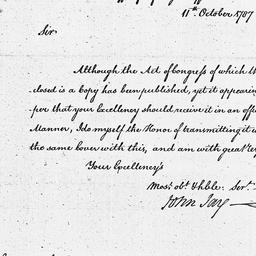 11th October 1787
Sir
Although the Act of Congress of which the
closed is a Copy has been published, yet it appearing
per that your Excellency should receive it in an offi
Manner, I do myself the Honor of transmitting it u
the same Cover with this, and am with great
Your Excellency's
Most obt & hble. Serv.
John Jay